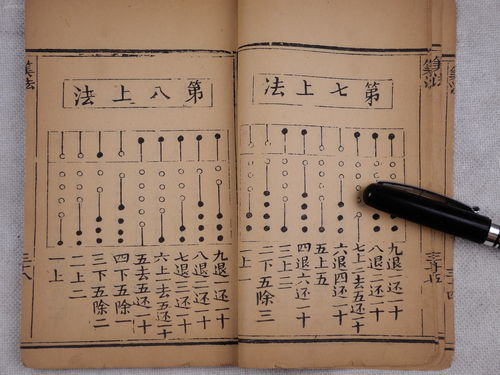 第七上法
九退一还一十
八退二还一十
七上二去五还一十
六退四还一十
五上五
四退六还一十
三上三
二下五除三
一上一
第八上法
九退一还一十
八退二还一十
七退三还一十
六上一去五还一十
五去五还一十
四下五除一
三下五除二
二上二
一上一
筭法